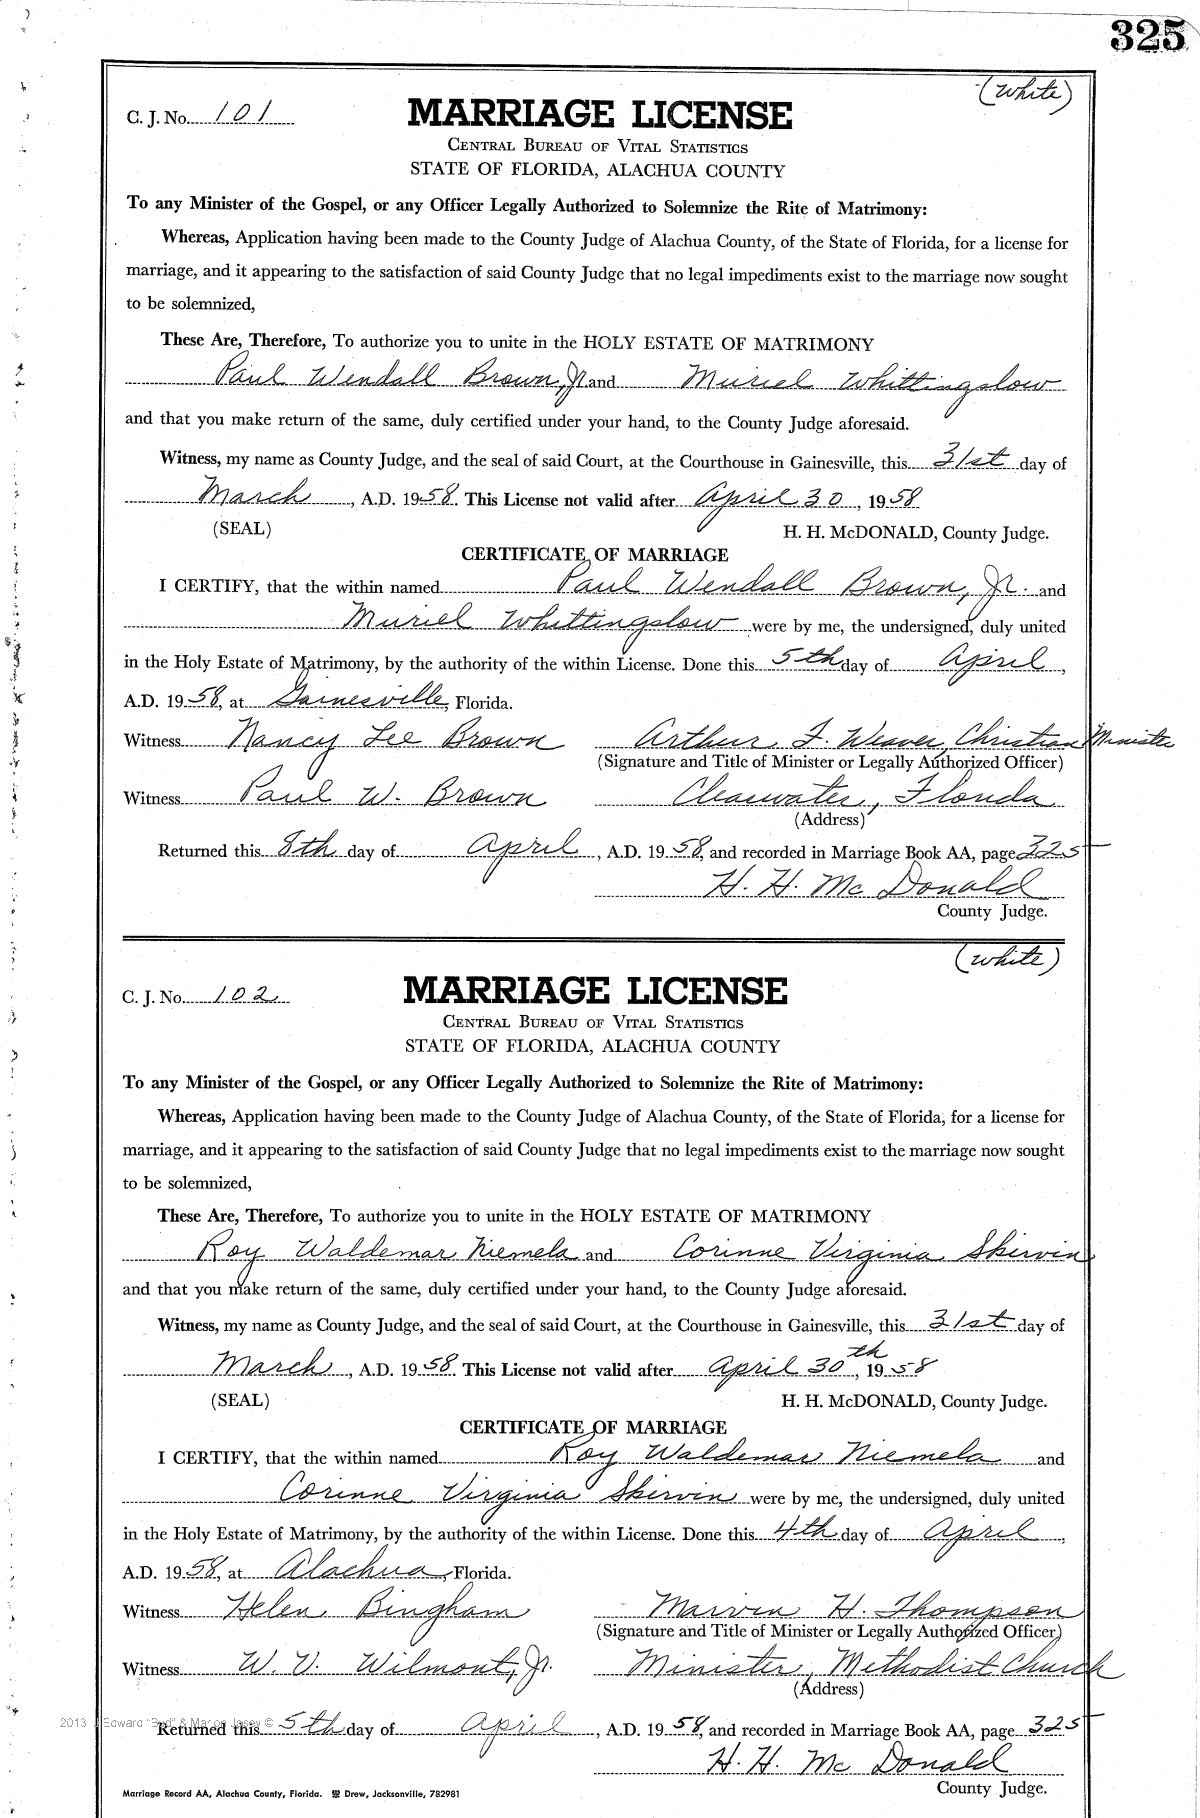 325
(White)
C. J. No. 101
MARRIAGE LICENSE
CENTRAL BUREAU OF VITAL STATISTICS
STATE OF FLORIDA, ALACHUA COUNTY
To any Minister of the Gospel, or any Officer Legally Authorized to Solemnize the Rite of Matrimony:
Whereas, Application having been made to the County Judge of Alachua County, of the State of Florida, for a license for
marriage, and it appearing to the satisfaction of said County Judge that no legal impediments exist to the marriage now sought
to be solemnized,
These Are, Therefore, To authorize you to unite in the HOLY ESTATE OF MATRIMONY
Paul Wendall Brown, Jr. and Muriel Whittingslow
and that you make return of the same, duly certified under your hand, to the County Judge aforesaid.
Witness, my name as County Judge, and the seal of said Court, at the Courthouse in Gainesville, this 31st day of
March, A.D. 1958. This License not valid after April 30, 1958
(SEAL) H. H. McDONALD, County Judge.
CERTIFICATE OF MARRIAGE
I CERTIFY, that the within named Paul Wendall Brown, Jr. and
Muriel Whittingslow were by me, the undersigned, duly united
in the Holy Estate of Matrimony, by the authority of the within License. Done this 5th day of April,
A.D. 1958, at Gainesville, Florida.
Witness Nancy Lee Brown Arthur F. Weaver, Christian Minister
(Signature and Title of Minister or Legally Authorized Officer)
Witness Paul W. Brown Clearwater, Florida
(Address)
Returned this 8th day of April, A.D. 1958, and recorded in Marriage Book AA, page 325
H. H. Mc Donald
County Judge.
(White)
C. J. No. 102
MARRIAGE LICENSE
CENTRAL BUREAU OF VITAL STATISTICS
STATE OF FLORIDA, ALACHUA COUNTY
To any Minister of the Gospel, or any Officer Legally Authorized to Solemnize the Rite of Matrimony:
Whereas, Application having been made to the County Judge of Alachua County, of the State of Florida, for a license for
marriage, and it appearing to the satisfaction of said County Judge that no legal impediments exist to the marriage now sought
to be solemnized,
These Are, Therefore, To authorize you to unite in the HOLY ESTATE OF MATRIMONY
Roy Waldemar Niemela and Corinne Virginia Skirvin
and that you make return of the same, duly certified under your hand, to the County Judge aforesaid.
Witness, my name as County Judge, and the seal of said Court, at the Courthouse in Gainesville, this 31st day of
March, A.D. 1958. This License not valid after April 30th, 1958
(SEAL) H. H. McDONALD, County Judge.
CERTIFICATE OF MARRIAGE
I CERTIFY, that the within named Roy Waldemar Niemela and
Corinne Virginia Skirvin were by me, the undersigned, duly united
in the Holy Estate of Matrimony, by the authority of the within License. Done this 4th day of April,
A.D. 1958, at Alachua, Florida.
Witness Helen Bingham Marvin H. Thompson
(Signature and Title of Minister or Legally Authorized Officer)
Witness W. V. Wilmont, Jr. Minister, Methodist Church
(Address)
2013 Edward "Bud" & Marion Josey ©
Returned this 5th day of April, A.D. 1958, and recorded in Marriage Book AA, page 325
H. H. Mc Donald
County Judge.
Marriage Record AA, Alachua County, Florida. Drew, Jacksonville, 782981